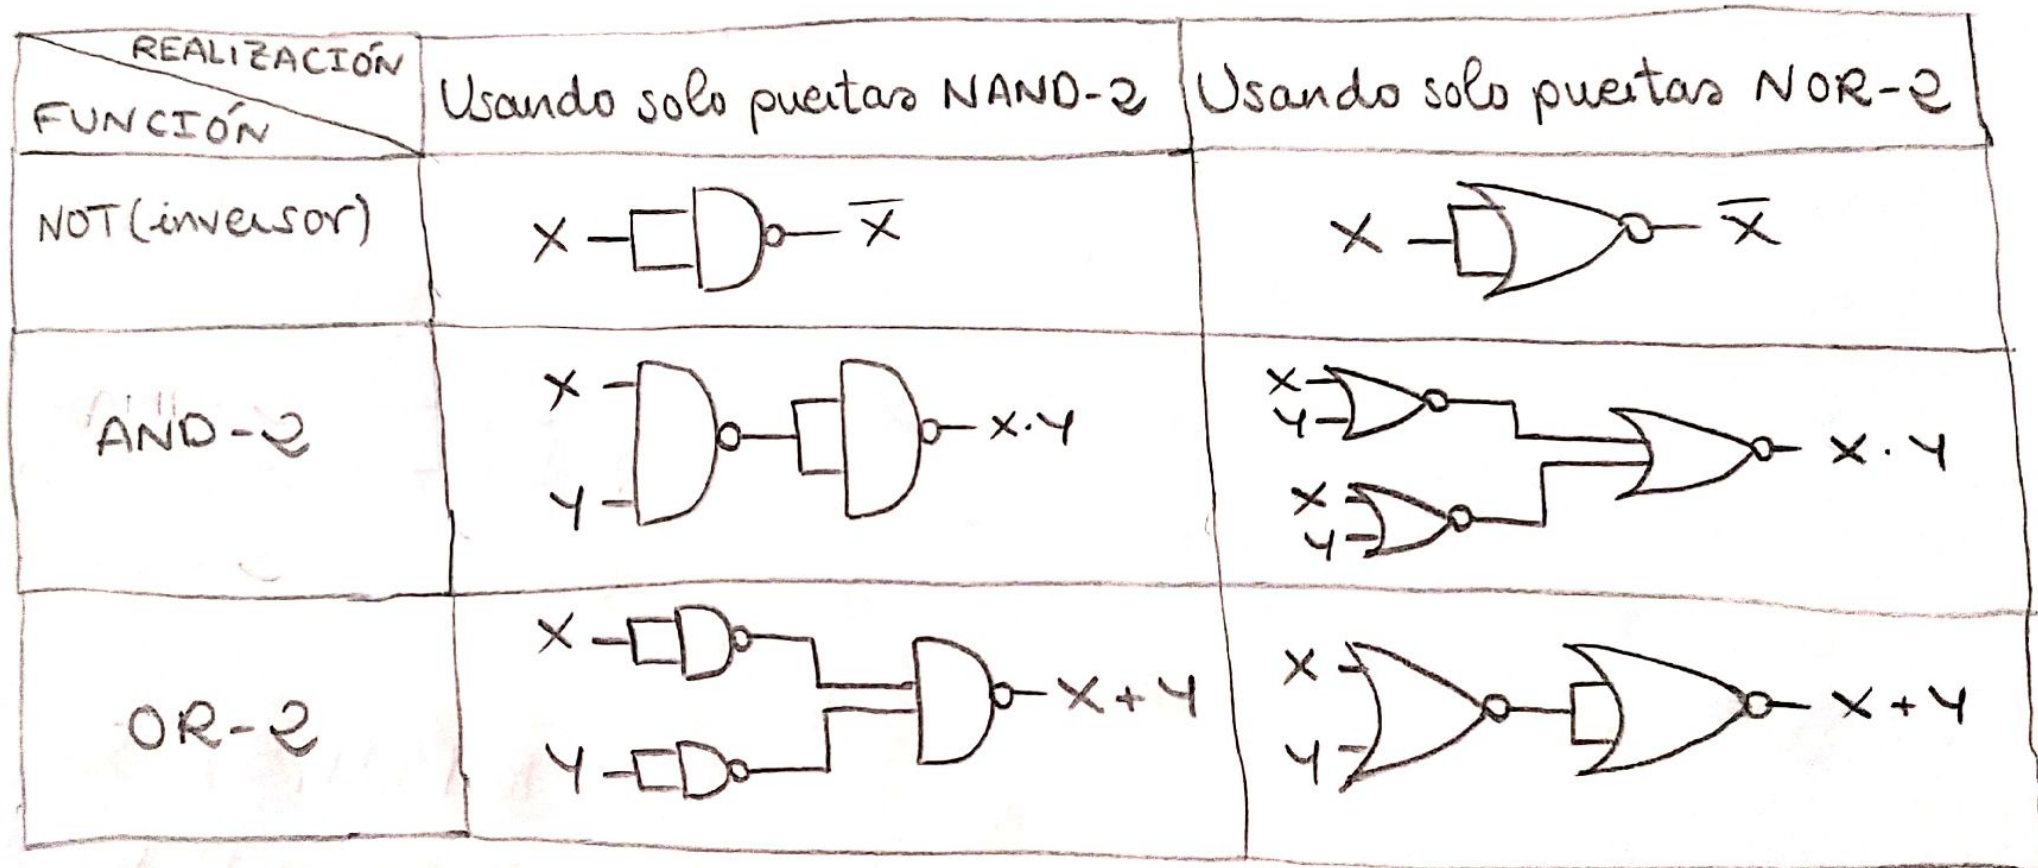 REALIZACIÓN
FUNCIÓN
Usando solo puertas NAND-2
Usando solo puertas NOR-2
NOT (inversor)
X
X̅
X
X̅
AND-2
X
Y
X·Y
X
Y
X
Y
X·Y
OR-2
X
Y
X+Y
X
Y
X+Y